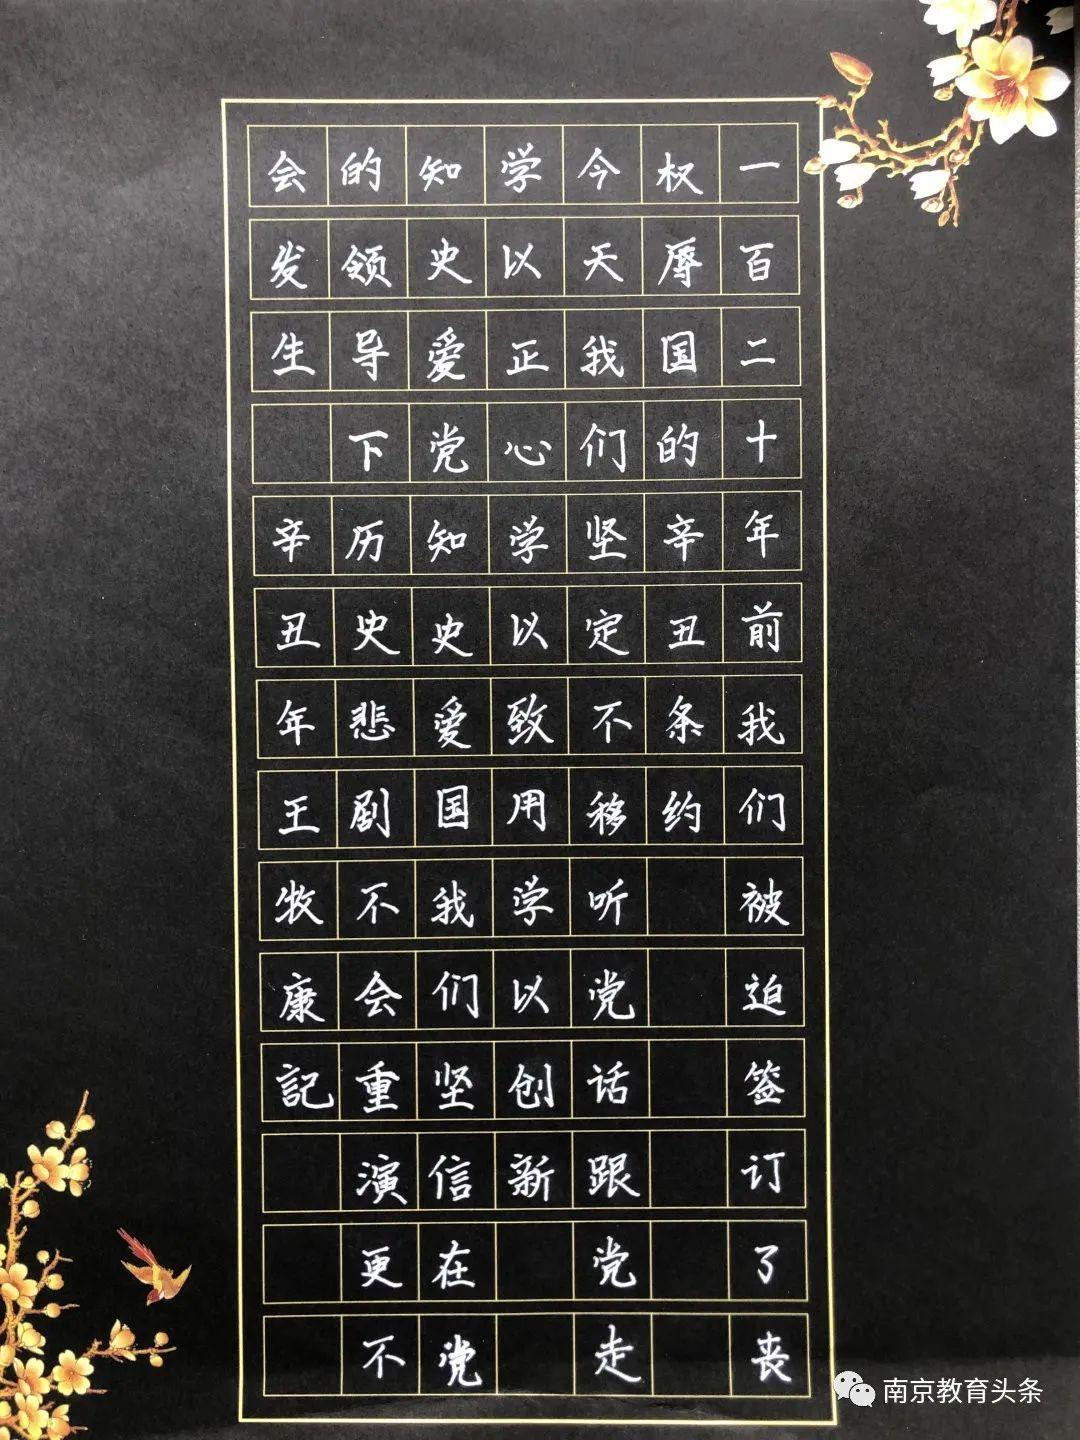 一百二十年前我们被迫签订了丧
权辱国的辛丑条约
今天我们坚定不移听党话跟党走
学以正心学以致用学以创新
知史爱党知史爱国我们坚信在党
的领导下历史悲剧不会重演更不
会发生
辛丑年王牧康記
南京教育头条